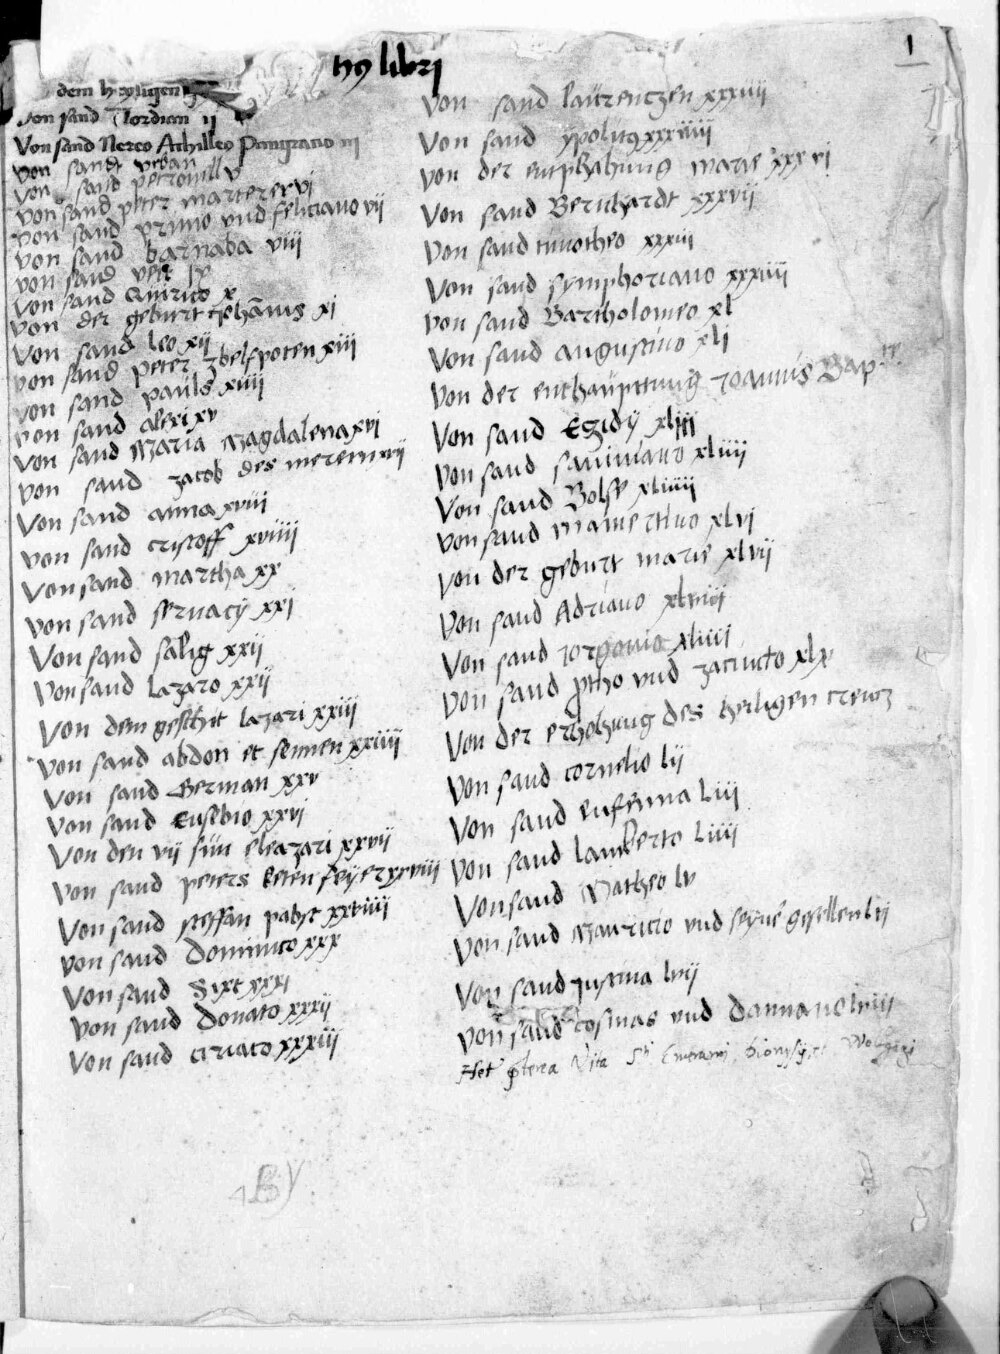 hy libri
1
dem heyligen
Von sand Gordian ii
Von sand Nereo Achilleo Pangracio iii
Von sandt vrban
Von sand petronill v
Von sand peter marterer vi
Von sand primo vnd feliciano vii
Von sand barnaba viii
Von sand veit ix
Von sand Quirico x
Von der geburt Johannis xi
Von sand leo xii
Von sand peter zbelfpoten xiii
Von sand pauls xiiii
Von sand alexi xv
Von sand Maria Magdalena xvi
Von sand Jacob des merern xvii
Von sand anna xviii
Von sand cristoff xviiii
Von sand martha xx
Von sand seruacy xxi
Von sand salig xxii
Von sand lazaro xxii
Von dem geschit lazari xxiii
Von sand abdon et sennen xxiiii
Von sand German xxv
Von sand Eusebio xxvi
Von den vij sün eleazari xxvii
Von sand peters keten feyer xxviii
Von sand steffan pabst xxviiii
Von sand Dominico xxx
Von sand Sixt xxxi
Von sand Donato xxxii
Von sand ciriaco xxxiii
Von sand laurenczen xxxiiii
Von sand ypolitus xxxiiiii
Von der emphahung marie xxxvi
Von sand Bernhardt xxxvii
Von sand timotheo xxxiii
Von sand symphoriano xxxiiii
Von sand Bartholomeo xl
Von sand augustino xli
Von der enthaupttung Joannis Bap
Von sand Egidy xliii
Von sand xliiii
Von sand Bolff xliiiii
Von sand mamertino xlvi
Von der geburt marie xlvii
Von sand Adriano xlviii
Von sand xliiii
Von sand ptho vnd Jacincto xlx
Von der erhohung des heiligen creucz
Von sand cornelio lii
Von sand eufemia liii
Von sand lamberto liiii
Von sand Matheo lv
Von sand Mauricio vnd seyne gesellen lvi
Von sand Justina lvii
Von sand cosmas vnd damiano lviii
Vita Sti Emerami, dionysij, et Wolfgangi